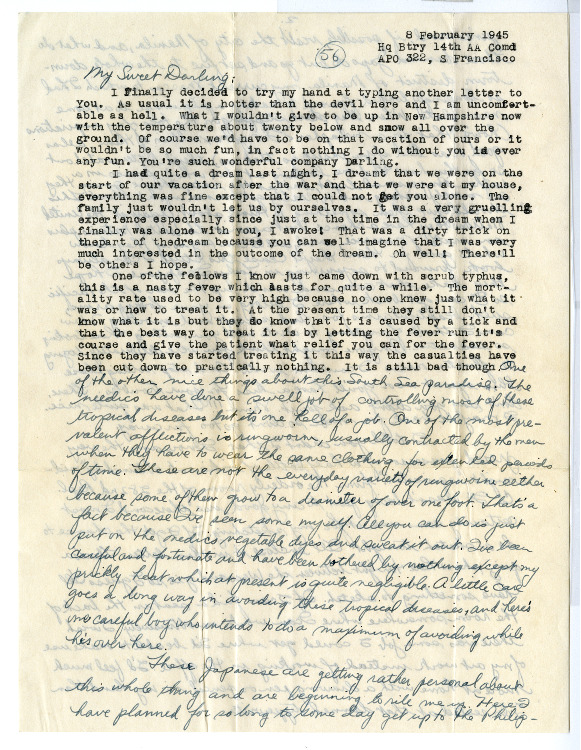 8 February 1945
56
Hq Btry 14th AA Comd
APO 322, S Francisco
My Sweet Darling;
I finally decided to try my hand at typing another letter to
You. As usual it is hotter than the devil here and I am uncomfert-
able as hell. What I wouldn't give to be up in New Hampshire now
with the temperature about twenty below and snow all over the
ground. Of course we'd have to be on that vacation of ours or it
wouldn't be as much fun, in fact nothing I do without you is ever
any fun. You're such wonderful company Darling.
I had quite a dream last night, I dreamt that we were on the
start of our vacation after the war and that we were at my house,
everything was fine except that I could not get you alone. The
family just wouldn't let us by ourselves. It was a very gruelling
experience especially since just at the time in the dream when I
finally was alone with you, I awoke! That was a dirty trick on
thepart of thedream because you can well imagine that I was very
much interested in the outcome of the dream. Oh well! There'll
be others I hope.
One ofthe fellows I know just came down with scrub typhus,
this is a nasty fever which lasts for quite a while. The mort-
ality rate used to be very high because no one knew just what it
was or how to treat it. At the present time they still don't
know what it is but they do know that it is caused by a tick and
that the best way to treat it is by letting the fever run it's
course and give the patient what relief you can for the fever.
Since they have started treating it this way the casualties have
been cut down to practically nothing. It is still bad though One
of the other nice things about this South Sea paradise. The
medics have done a swell job of controlling most of these
tropical diseases but it's one hell of a job. One of the most pre-
valent afflictions is ringworm, usually contracted by the men
when they have to wear the same clothing for extended periods
of time. These are not the everyday variety of ringworm either
because some of them grow to a diameter of over one foot. That's a
fact because I've seen some myself. All you can do is just
put on the medics vegetable dyes and sweat it out. I've been
careful and fortunate and have been bothered by nothing except my
prickly heat which at present is quite negligible. A little care
goes a long way in avoiding these tropical diseases, and here's
one careful boy who intends to do a maximum of avoiding while
he's over here.
These Japanese are getting rather personal about
this whole thing and are beginning to rile me up. Here I
have planned for so long to some day get up to the Philip-